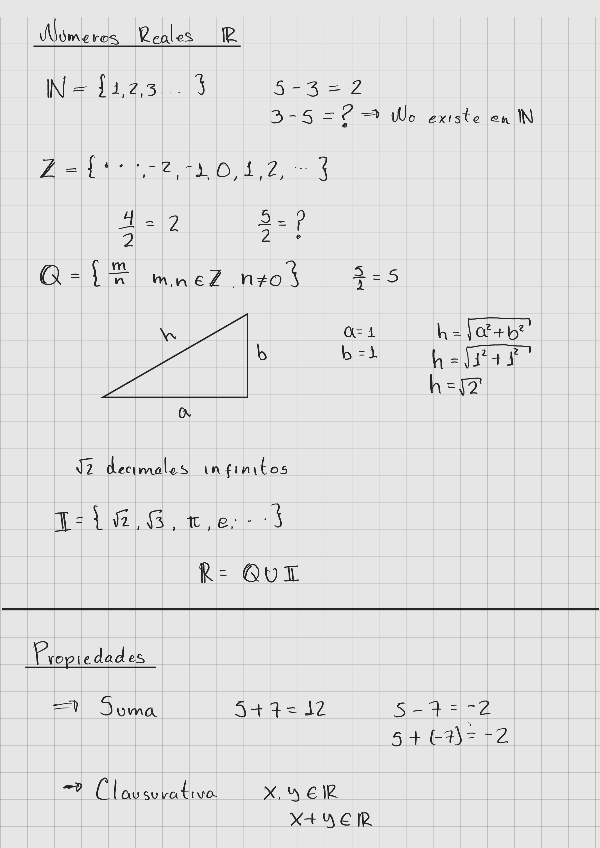 Números Reales ℝ
ℕ = {1, 2, 3 ...} 5 - 3 = 2
3 - 5 = ? ⇒ No existe en ℕ
ℤ = {..., -2, -1, 0, 1, 2, ...}
4/2 = 2 5/2 = ?
ℚ = { m/n m, n ∈ ℤ, n ≠ 0 } 5/1 = 5
h
b
a
a = 1 h = √(a² + b²)
b = 1 h = √(1² + 1²)
h = √2
√2 decimales infinitos
𝕀 = { √2, √3, π, e, ... }
ℝ = ℚ ∪ 𝕀
Propiedades
⇒ Suma 5 + 7 = 12 5 - 7 = -2
5 + (-7) = -2
⇒ Clausurativa x, y ∈ ℝ
x + y ∈ ℝ